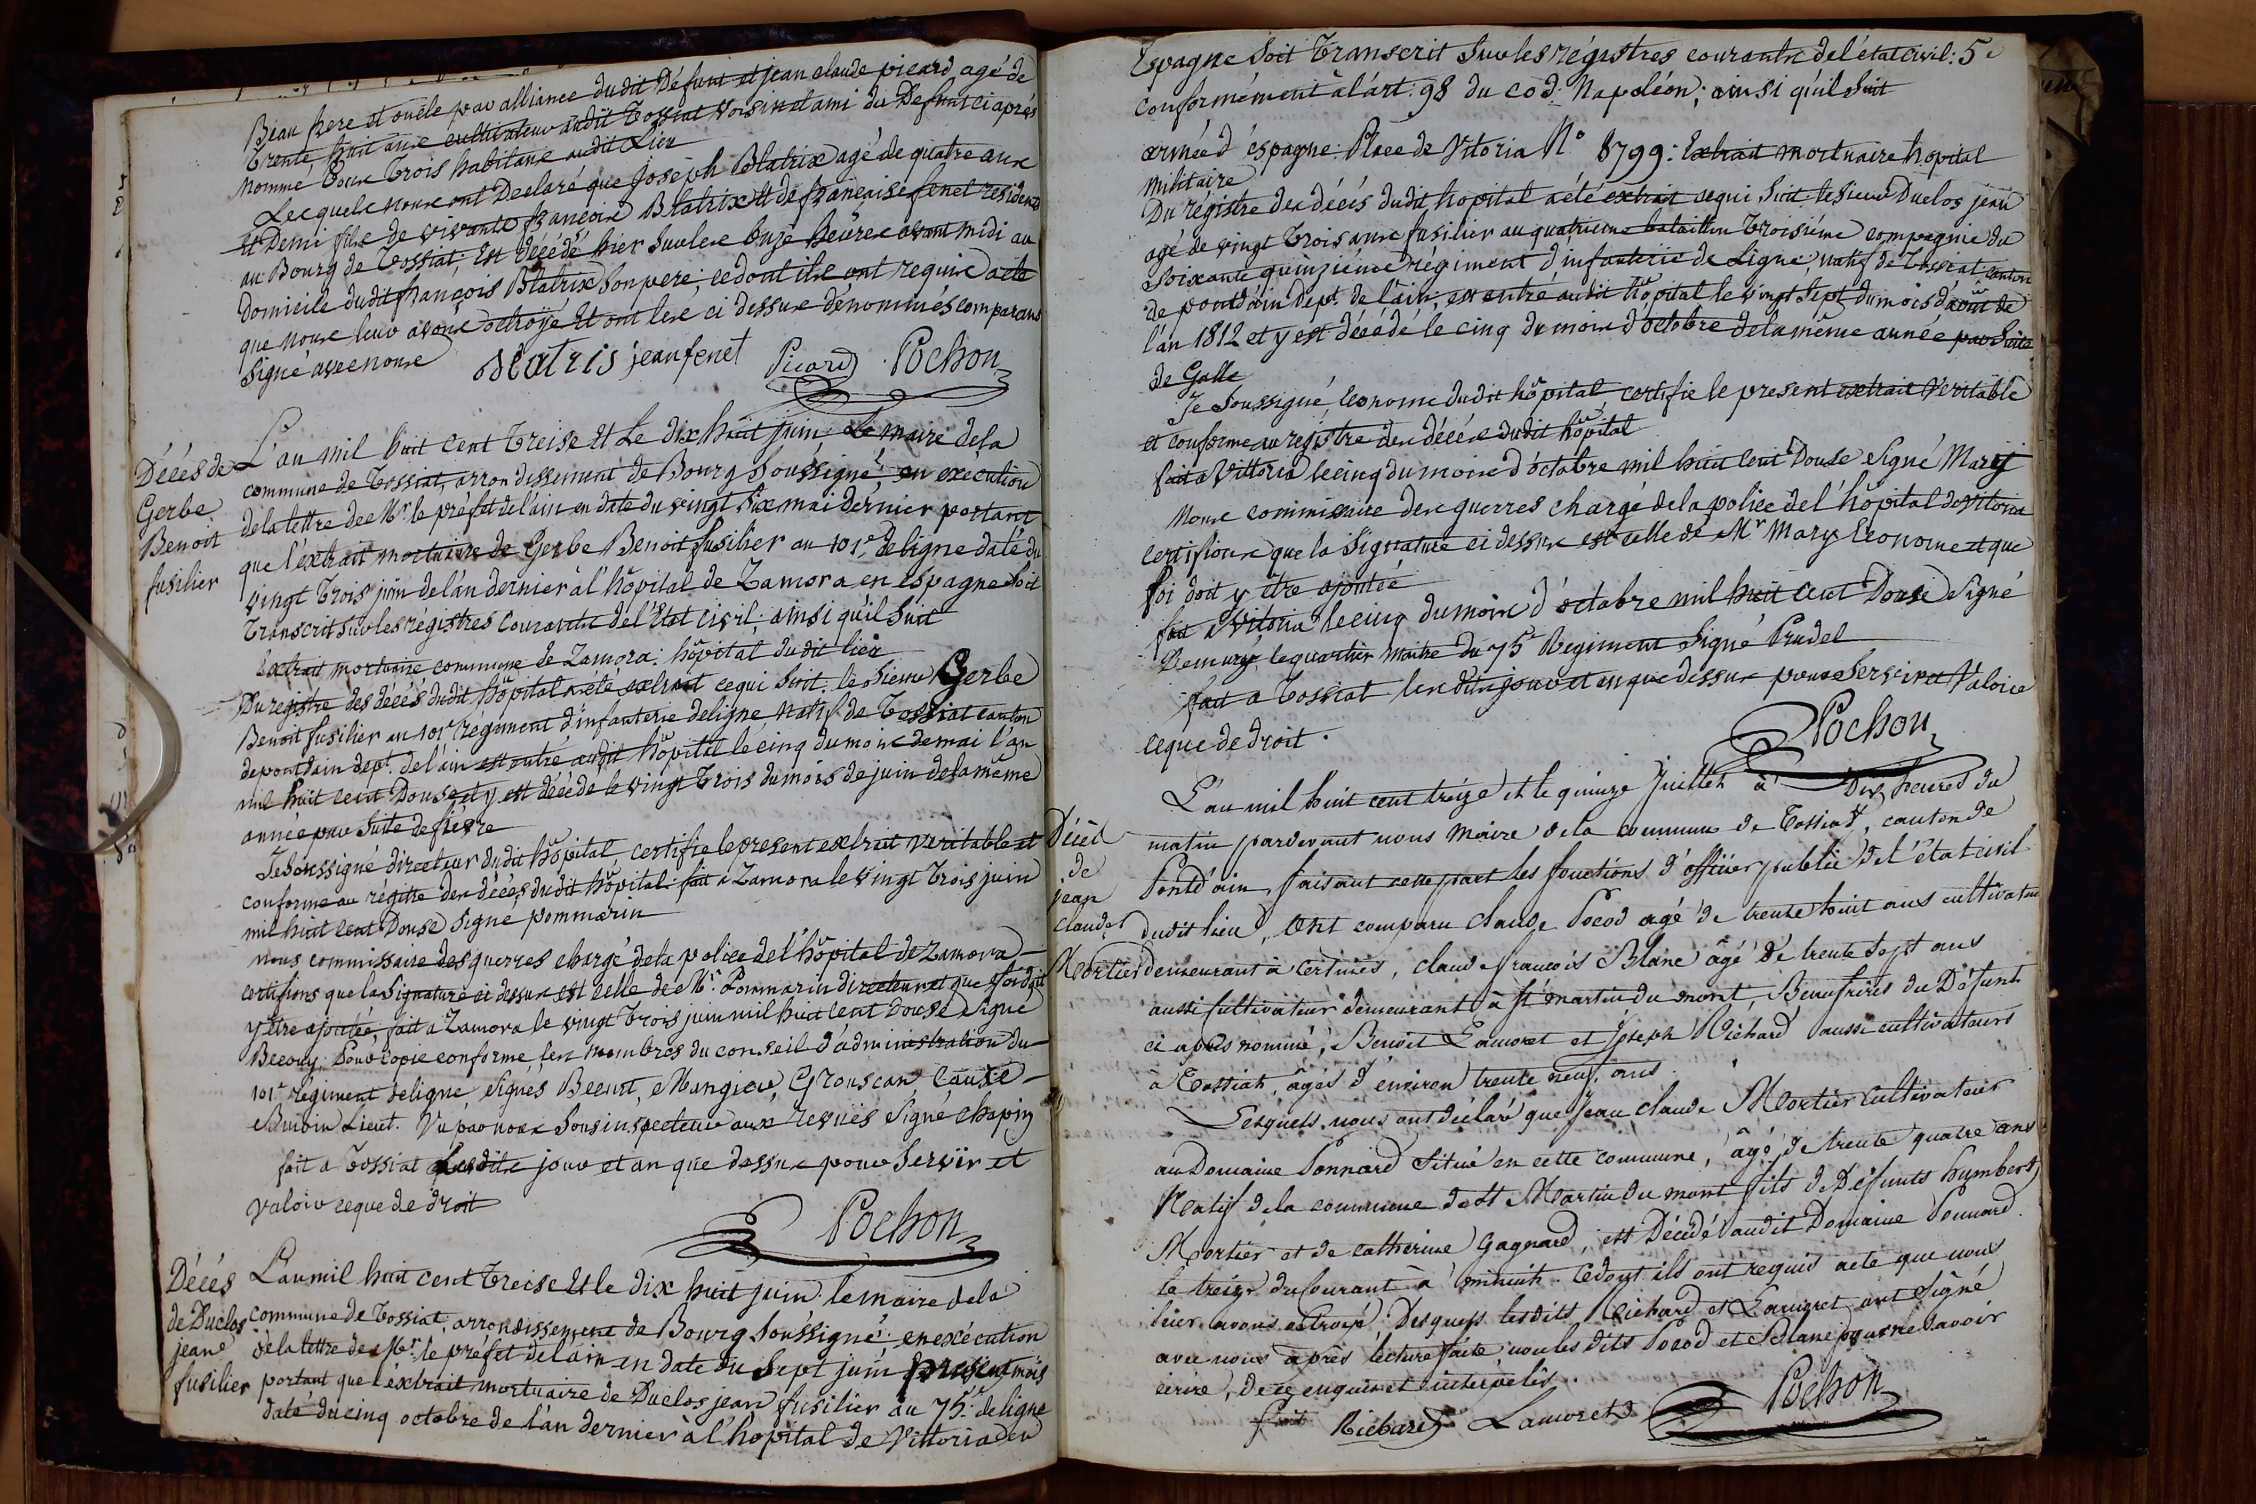 Beau frere et oncle par alliance dudit Défunt et jean claude picard, agé de
trente huit ans cultivateur audit Tossiat voisin et ami du Defunt ci après
nommé tous trois habitans audit Lieu
Lesquels nous ont Declaré que Joseph Blatrix agé de quatre ans
et Demi fils de vivants françois Blatrix et de françaisе fenet residents
au Bourg de Tossiat, Est décédé hier sur les onze heures avant midi au
domicile dudit françois Blatrix son pere, cedont ils ont requis acte
que nous leur avons octroyé Et ont les ci dessus dénommés comparans
signé avec nous
Blatris jean fenet Picard Pochon
Décés de
Gerbe
Benoit
fusilier
L'an mil huit cent treise Et Le dix huit juin, Le maire dela
commune de Tossiat, arrondissement de Bourg soussigné, en execution
dela lettre de Mr le préfet de l'ain en date du vingt six mai dernier portant
que l'extrait mortuaire de Gerbe Benoit fusilier au 101e deligne daté du
vingt trois juin de lan dernier à l'hôpital de Zamora en espagne soit
transcrit sur les régistres courants de l'Etat civil; ainsi qu'il suit
Extrait mortuaire commune de Zamora: hôpital dudit lieu
Du registre des décés dudit hôpital a été extrait cequi suit: le sieur Gerbe
Benoit fusilier au 101e regiment d'infanterie deligne natif de Tossiat canton
de pontdain dept. de l'ain est entré audit hôpital le cinq du mois de mai l'an
mil huit cent Douse et y est décédé le vingt trois du mois de juin de la même
année par suite de fièvre
Je soussigné directeur dudit hôpital certifie le present extrait veritable et
conforme au régitre des décés dudit hôpital fait à Zamora le vingt trois juin
mil huit cent Douse signé pommarin
nous commissaire des guerres chargé dela police del'hôpital de Zamora
certifions que la signature ci dessus est celle de Mr. Pommarin directeur et que foi doit
y être ajoutée, fait a Zamora le vingt trois juin mil huit cent Douse signé
Pour copie conforme, les membres du conseil d'administration du
101e régiment deligne signés
Lieut. Vu par nous sous inspecteur aux revues signé chapin
fait a Tossiat lesdits jour et an que dessus pour servir et
valoir ceque de droit
Pochon
Décés
de Duclos
jean
fusilier
L'an mil huit cent treise Et le dix huit juin, le maire dela
commune de Tossiat, arrondissement de Bourg soussigné, en exécution
dela lettre de Mr. le préfet de l'ain en date du sept juin present mois
portant que l'éxtrait mortuaire de Duclos jean fusilier au 75e. deligne
daté du cinq octobre de l'an dernier à l'hopital de Vittoria en
Espagne soit transcrit sur les régistres courants del'état civil: 5e
conformément à l'art: 98 du cod: Napoléon; ainsi qu'il suit
armée d'éspagne: Place de Vitoria No 8799: Extrait mortuaire hopital
militaire
Du régistre des décés dudit hopital a été extrait cequi suit le sieur Duclos jean
agé de vingt trois ans fusilier au quatrieme bataillon troisiéme compagnie du
soixante quinziéme régiment d'infanterie de ligne, natif de Tossiat canton
de pontdain dept. de l'ain, est entré audit hôpital le vingt sept du mois d'août de
l'an 1812 et y est décédé le cinq du mois d'octobre de la même année par suite
de Galle
Je soussigné, économe dudit hôpital certifie le present extrait véritable
et conforme au régistre des décés dudit hôpital
fait a Vittoria le cinq du mois d'octobre mil huit cent Douse signé Mary
Nous commissaire des guerres chargé dela police del'hôpital de Vitoria
certifions que la signature ci dessus est celle de Mr Mary Econome et que
foi doit y être ajoutée
fait a Vitoria le cinq du mois d'octobre mil huit cent Douse signé
le quartier maitre du 75e Regiment signé Pradel
fait a Tossiat les dits jour et an que dessus pour servir et valoir
ceque de droit.
Pochon
Décès
de
jean
claude
Mortier
L'an mil huit cent treize et le quinze juillet à Dix heures du
matin pardevant nous maire de la commune de Tossiat, canton de
Pontd'ain, faisant cette part les fonctions d'officier public de l'état civil
dudit lieu, ont comparu claude Pocod agé de trente huit ans cultivateur
demeurant à Certines, claude francois Blanc âgé de trente sept ans
aussi cultivateur demeurant à st martin du mont, Beaufrères du Défunt
ci après nommé; Benoit Lamoret et Joseph Richard aussi cultivateurs
à Tossiat, âgés d'environ trente neuf ans.
Lesquels nous ont déclaré que Jean claude Mortier cultivateur
au Domaine Ponnard situé en cette commune, âgé de trente quatre ans
Natif de la commune de st Martin du mont fils de Défunts humbert
Mortier et de catherine Gagnard, est Décédé audit Domaine Ponnard
le treize du Courant à minuit. Cedont ils ont requis acte que nous
leur avons octroyé; Desquels lesdits Richard et Lamoret ont signé
avec nous après lecture faite non les dits Pocod et Blanc pour ne savoir
écrire, de ce enquis et interpelés.
Richard Lamoret Pochon